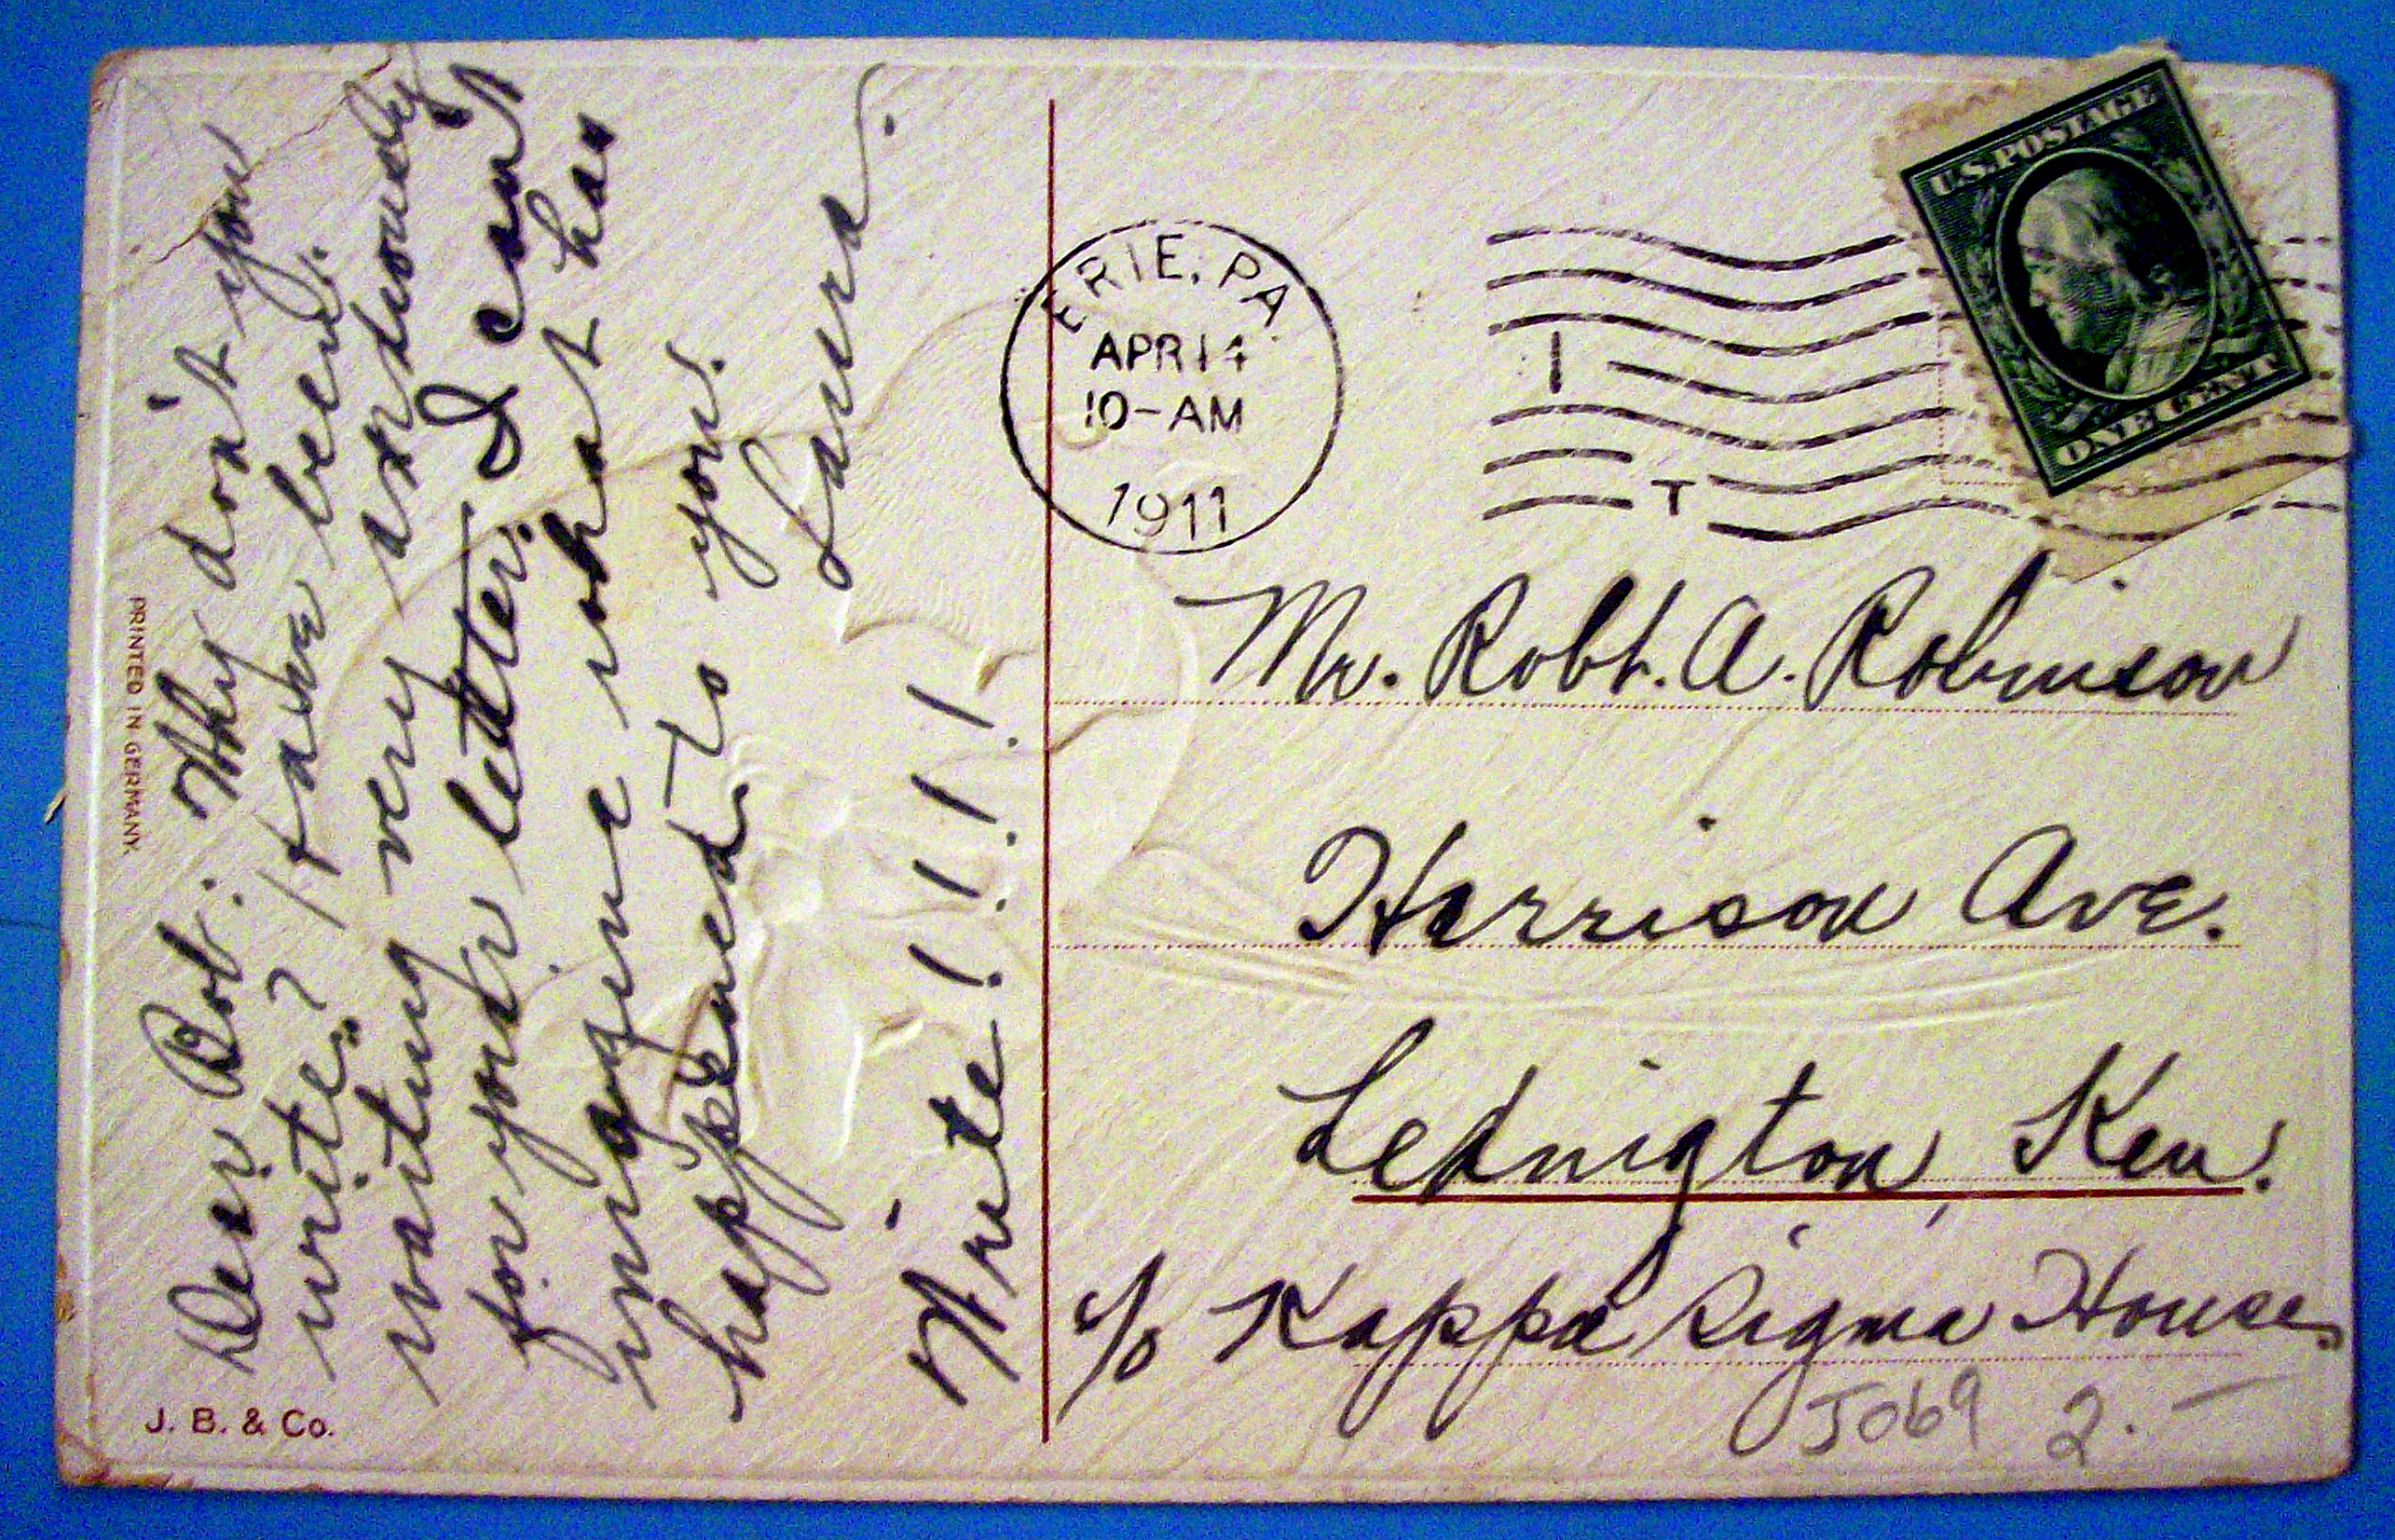 Dear Bob: Why don't you
write? I have been
waiting very anxiously
for your letter. I can't
imagine what has
happened to you.
Laura.
Write!!!!!
PRINTED IN GERMANY.
J. B. & Co.
ERIE, PA.
APR 14
10-AM
1911
I
T
U.S. POSTAGE
ONE CENT
Mr. Robt. A. Robinson
Harrison Ave.
Lexington, Ken.
c/o Kappa Sigma House.
J069 2.-